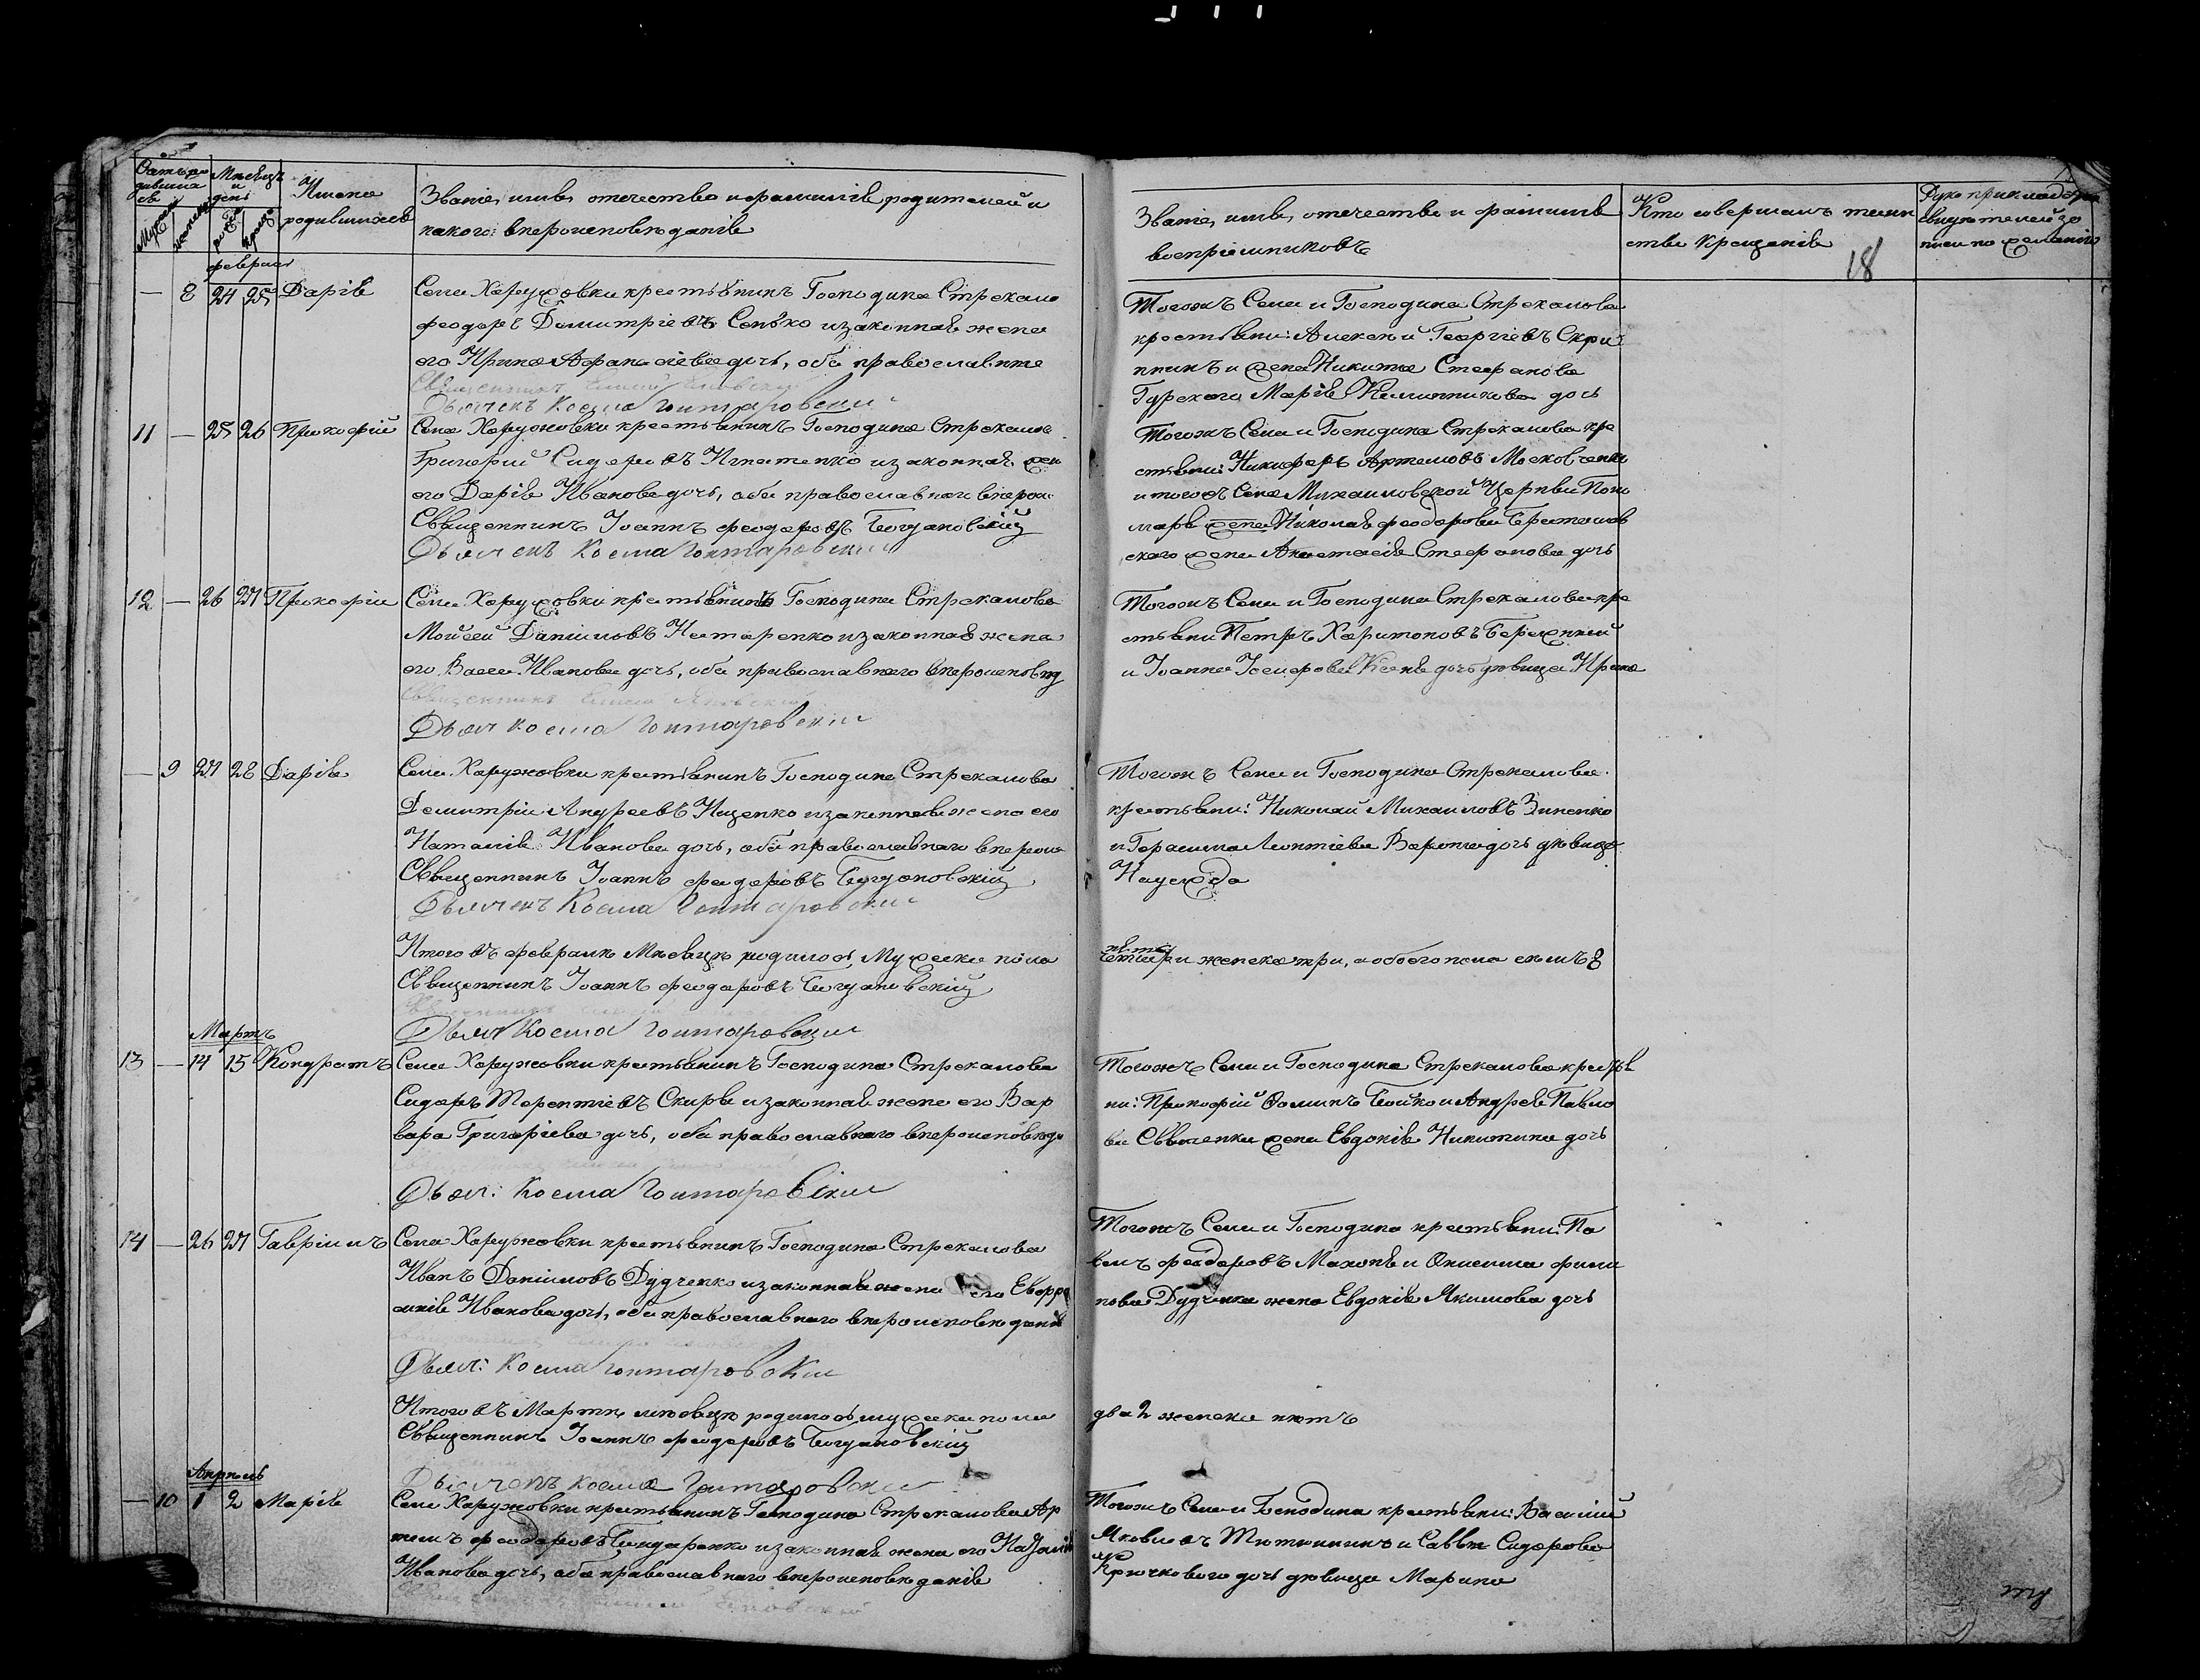 Счетъ ро
дившихся
Мѣсяцъ
и
дни
Имена
родившихся
Званіе, имя, отечество и фамилія родителей и
какого вѣроисповѣданія
Званіе, имя, отечество и фамилія
воспріемниковъ
Кто совершалъ таин
ство крещенія
18
февраль
— 8 24 25 Дарія
Села Харужовки крестьянинъ Господина Стрекало
Феодоръ Димитріевъ Сенько и законная жена
его Ирина Афанасіева дочь, оба православные
Дьячекъ Косма Гонтаровскій
Тогожъ Села и Господина Стрекалова
крестьяни: Алексѣй Георгіевъ Скри
пникъ и жена Никиты Стефанова
Гурского Марія Калинникова дочь
11 — 25 26 Прокофій
Села Харужовки крестьянинъ Господина Стрекалов
Григорий Сидоровъ Игнатенко и законная жен
его Дарія Иванова дочь, оба православнаго вѣрои
Священникъ Іоаннъ Феодоровъ Богдановскій
Дьячекъ Косма Гонтаровскій
Тогожъ Села и Господина Стрекалова кре
стьяни: Никифоръ Артемовъ Московченко
и тогожъ Села Михаиловской Церкви Поно
маря Николая Феодорова
ского жена Анастасія Стефанова дочь
12 — 26 27 Прокофій
Села Харужовки крестьянинъ Господина Стрекалова
Мойсей Даніиловъ Нестеренко и законная жена
его Васса Иванова дочь, оба православнаго вѣроисповѣд
Дьяч Косма Гонтаровскій
Тогожъ Села и Господина Стрекалова кре
стьяни Петръ Харитоновъ Бережний
и Іоанна Іосифова дочь дѣвица Ирина
— 9 27 28 Дарія
Села Харужовки крестьянинъ Господина Стрекалова
Димитрій Андреевъ Ищенко и законная жена его
Наталія Иванова дочь, оба православнаго вѣрои
Священникъ Іоаннъ Феодоровъ Богдановскій
Дьячекъ Косма Гонтаровскій
Тогожъ Села и Господина Стрекалова
крестьяни: Николай Михаиловъ Зиненко
и Герасима Леонтіева Вороны дочь дѣвица
Надежда
Итого въ февралѣ Мѣсяцѣ родилось Мужеска пола
четыри женска три, а обоего пола 8
Священникъ Іоаннъ Феодоровъ Богдановскій
Дьяч Косма Гонтаровскій
Мартъ
13 — 14 15 Кондратъ
Села Харужовки крестьянинъ Господина Стрекалова
Сидоръ Терентіевъ Скирва и законная жена его Вар
вара Григоріева дочь, оба православнаго вѣроисповѣда
Дьяч: Косма Гонтаровскій
Тогожъ Села и Господина Стрекалова крестья
ни: Прокофій Фоминъ Бойко и Андрея Павло
ва жена Евдокія Никитина дочь
14 — 26 27 Гавріилъ
Села Харужовки крестьянинъ Господина Стрекалова
Иванъ Даніиловъ Дудченко и законная жена его Евфро
синія Иванова дочь, оба православнаго вѣроисповѣданія
Дьяч: Косма Гонтаровскій
Тогожъ Села и Господина крестьяни: Па
велъ Феодоровъ Махоня и Онисима фили
пова Дудченка жена Евдокія Якимова дочь
Итого въ Мартѣ мѣсяцѣ родилось мужеска пола
два 2 женска нѣтъ
Священникъ Іоаннъ Феодоровъ Богдановскій
Дьячекъ Косма Гонтаровскій
Апрѣль
— 10 1 2 Марія
Села Харужовки крестьянинъ Господина Стрекалова Ар
темъ Феодоровъ Бондаренко и законная жена его Наталія
Иванова дочь, оба православнаго вѣроисповѣданія
Тогожъ Села и Господина крестьяни: Василій
Яковлевъ Тютюнникъ и Саввы Сидорова
Крючкового дочь дѣвица Марина